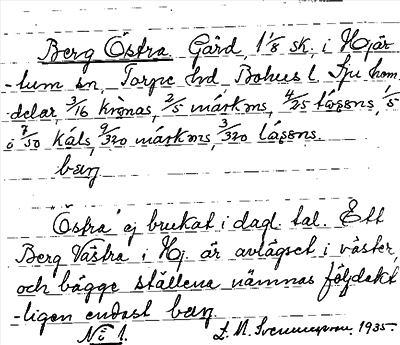 Berg Östra. Gård, 1 1/8 sk. i Hjär-
-tum sn, Torpe hd Bohus l. Sju hem.
delar, 3/16 krönas, 2/5 márkns, 4/25 lásəns, 1/5
o 7/50 káls, 9/320 márkns, 3/320 lásəns.
bærj
Östra ej brukat i dagl. tal. Ett
Berg Västra i Hj. är avlägset i väster,
och bägge ställena nämnas följdakt
-ligen endast bærj.
No 1. 1935.